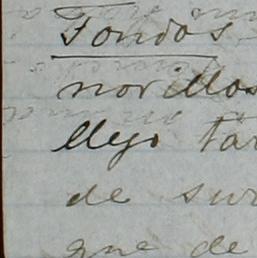 Fondos
norillos
llejo tar
de sur
que de